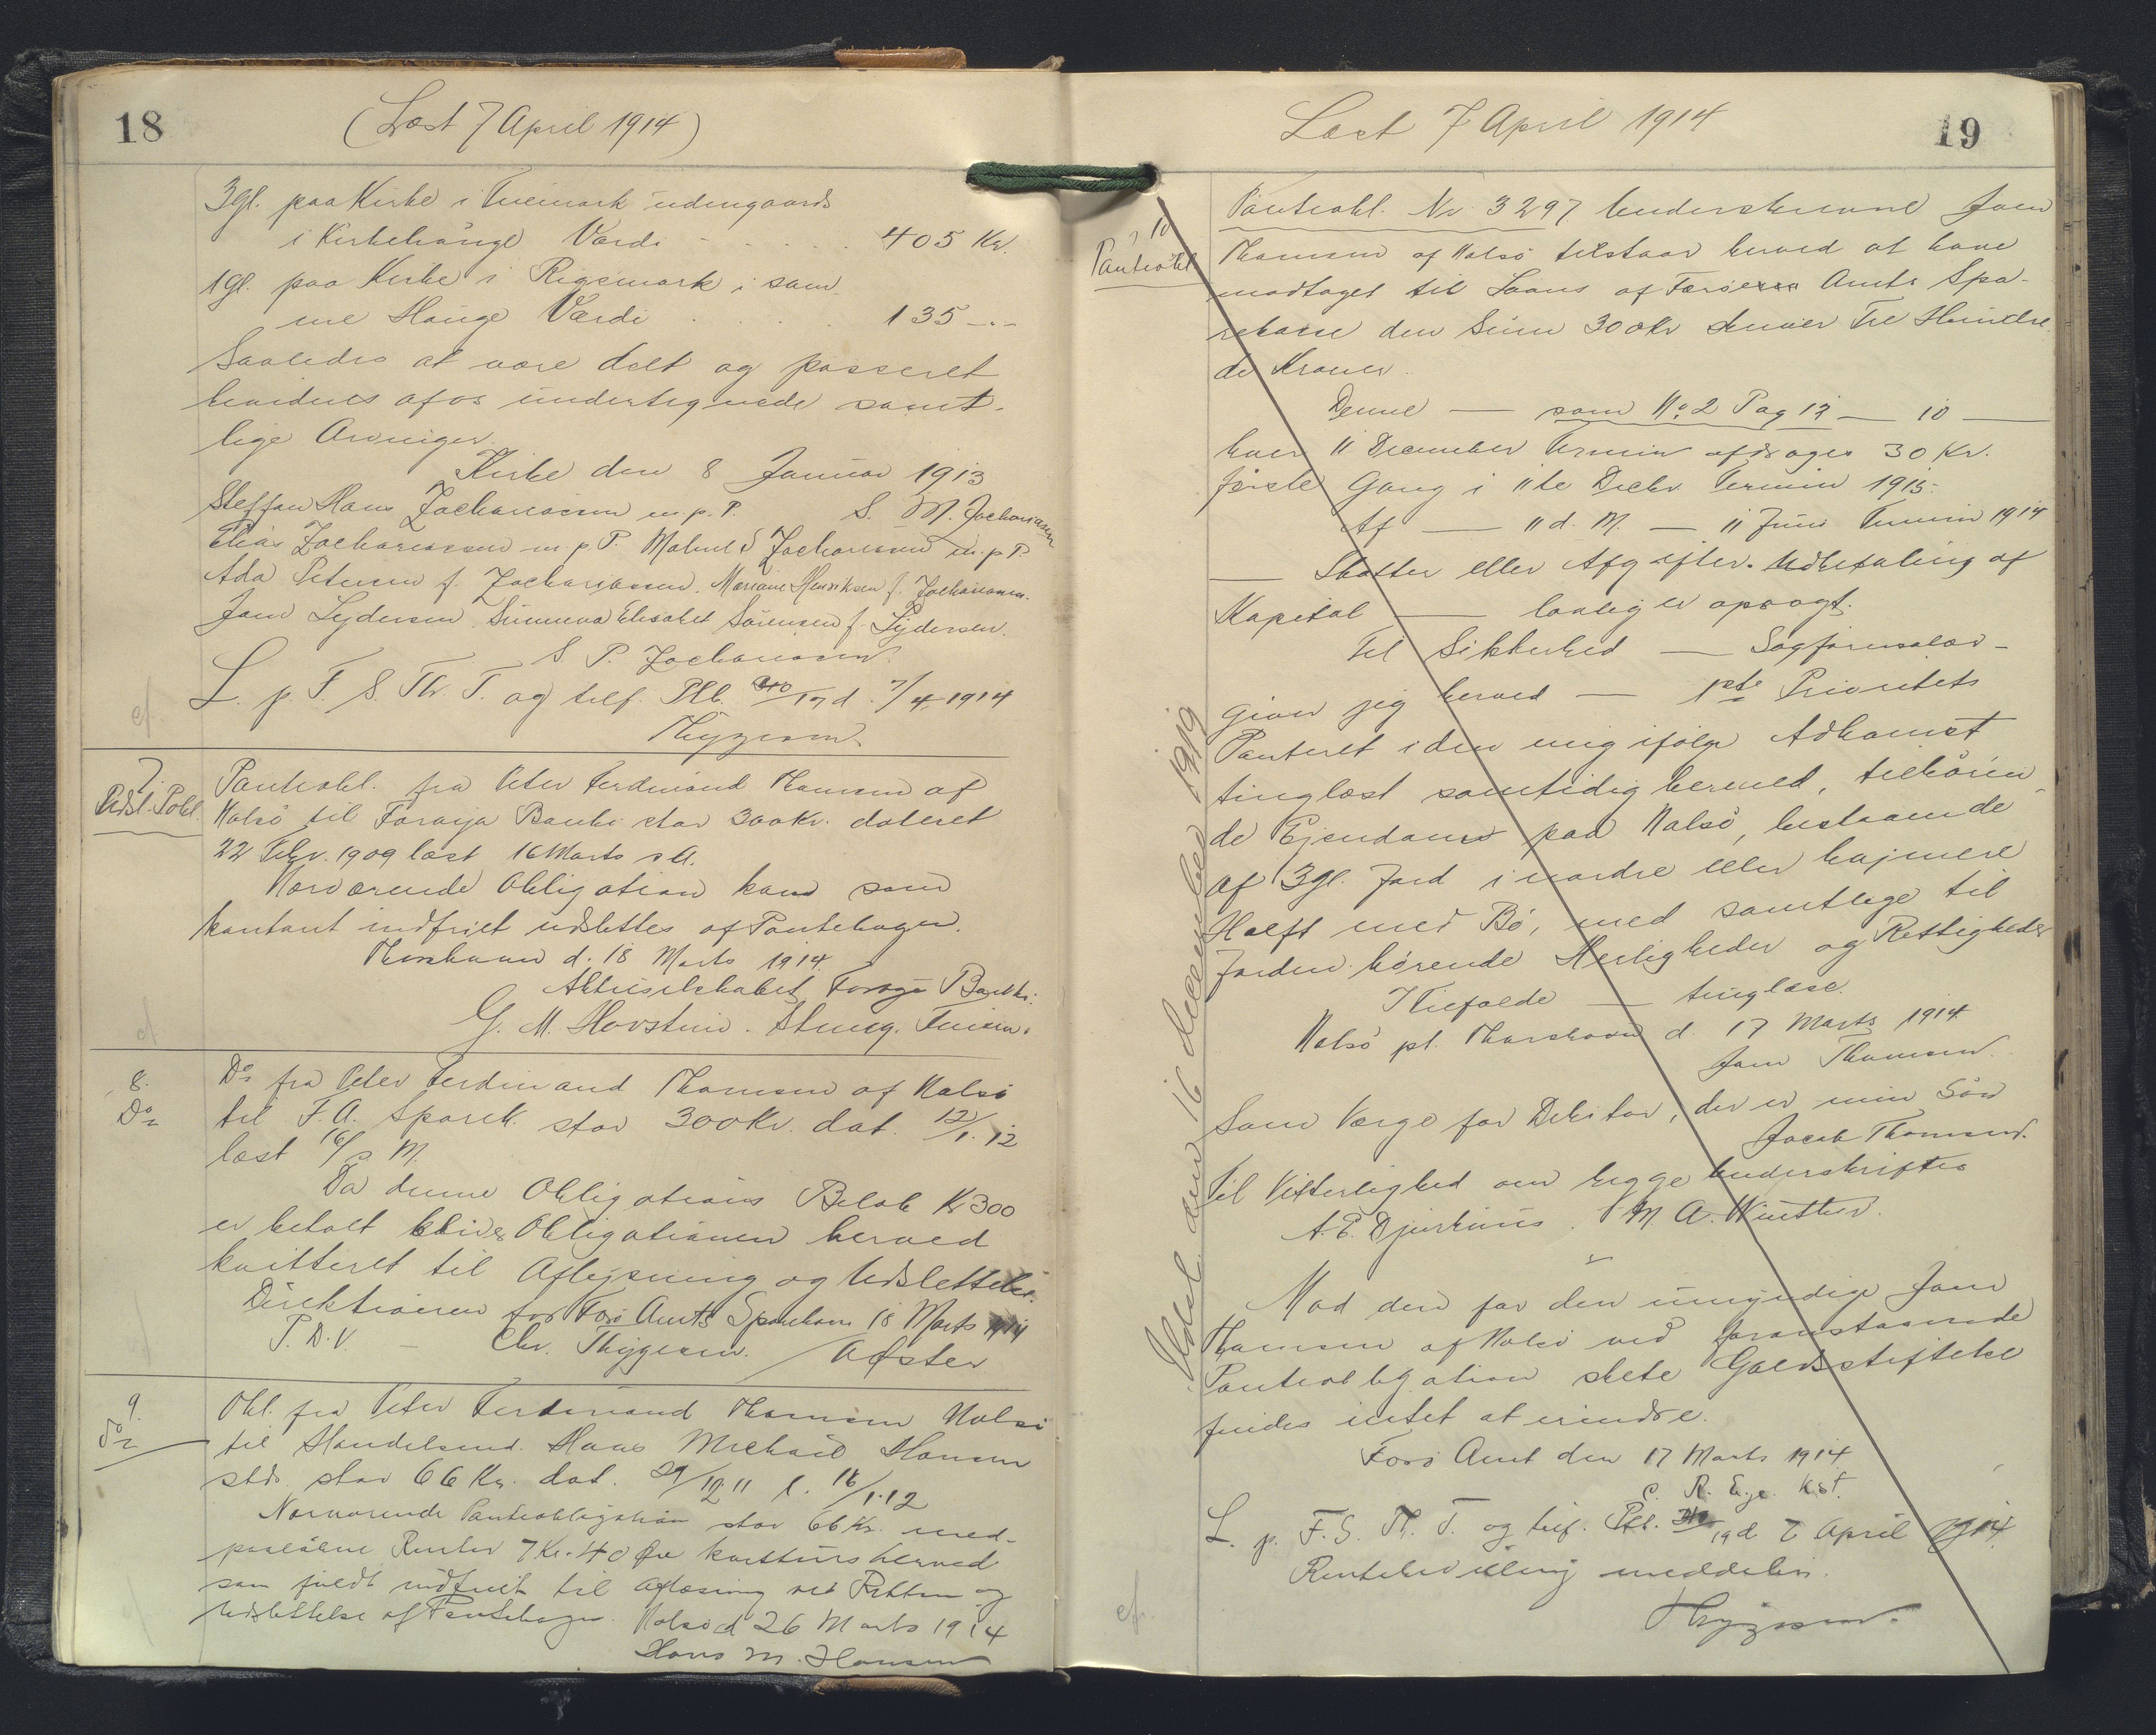 18
(Læst 7 April 1914)
3gl. paa Kirke i Tveimark udengaards
i Kirkehauge Værdi - - - - - 405 Kr.
1gl. paa Kirke i Rigsmark i sam
me Hauge Værdi . . . . 135 -.-
Saaledes at være delt og passeret
bevidnes af os undertegnede samt-
lige Arvinger.
Kirke den 8 Januar 1913
Steffan Hans Zachariasen m.p.P. S. M. Zachariasen
Elias Zachariasen m p.P. Malene S Zachariasen m.p P.
Ada Petersen f. Zachariasen. Mariane Henriksen f. Zachariasen.
Joen Lydersen Sunneva Elisabet Sørensen f. Lydersen.
S. P. Zachariasen.
L. p. F. S. Th. T. og tilf. Ptb. 17 d. 7/4 1914
Thygesen
cf.
7.
Udsl. Pobl.
Panteobl. fra Peter Ferdinand Thomsen af
Nolsø til Føroya Banki stor 300 Kr. dateret
22 Febr. 1909 læst 16 Marts s.A.
Nærværende Obligation kan som
kontant indfriet udslettes af Pantebogen.
Thorshavn d. 18 Marts 1914.
Aktieselskabet Føroya Banki.
G. M. Hovstein.
cf
8.
Do
Do fra Peter Ferdinand Thomsen af Nolsø
til F.A. Sparek. stor 300 Kr. dat. 12/1. 12
læst 16/s M.
Da denne Obligations Beløb Kr 300
er betalt bliver Obligationen herved
kvitteret til Aflysning og Udslettelse.
Direktionen for Færø Amts Sparekasse 18 Marts 1914
P. D. V. - Chr. Thygesen. / Adster
9.
Do
Obl. fra Peter Ferdinand Thomsen Nolsø
til Handelsmd. Hans Michael Hansen
stds. stor 66 Kr. dat. 29/12 11 l. 16/1.12
Nærværende Panteobligation stor 66 Kr. med-
paaløbne Renter 7 Kr. 40 Øre kvitteres herved
som fuldt indfriet til aflæsning ved Retten og
Udslettelse af Pantebogen. Nolsø d 26 Marts 1914
Hans M. Hansen
Læst 7 April 1914
19
10
Panteobl.
Panteobl. Nr. 3297 Underskrevne Joen
Thomsen af Nolsø tilstaar herved at have
modtaget til Laans af Færøernes Amts Spa-
rekasse den Sum 300 Kr skriver Tre Hundre
de Kroner.
Denne — som No. 2 Pag 13 — 10 —
hver 11 December Termin afdrages 30 Kr.
første Gang i 11te Decbr. Termin 1915.
Af — 11 d. M. — 11 Juni Termin 1914
— Skatter eller Afgifter. Udbetaling af
Kapital — lovlig er opsagt.
Til Sikkerhed — Sagførersalær —
giver jeg herved — 1ste Prioritets
Panteret i den mig ifølge Adkomst
tinglæst samtidig hermed, tilhøren
de Ejendoms paa Nolsø, bestaaende
af 3gl. Jord i nordre eller højmere
Helft med Bø, med samtlige til
Jorden hørende Herligheder og Rettigheder
I Tilfælde — tinglæse.
Nolsø pt. Thorshavn d 17 Marts 1914.
Joen Thomsen.
Som Værge for Debitor, der er min Søn
Jacob Thomsen.
Til Vitterlighed om begge Underskrifter
A. E. Djurhuus. M. A. Winther.
Mod den for den umyndige Joen
Thomsen af Nolsø ved foranstaaende
Panteobligation skete Gældsstiftelse
findes intet at erindre.
Færø Amt den 17 Marts 1914
C. R. Eye. Kst.
L. p. F. S. Th. T. og tilf. Ptb. 19 d. 7 April 1914
Rentebevilling meddeles.
Thygesen.
cf.
Udsl. den 16 december 1919